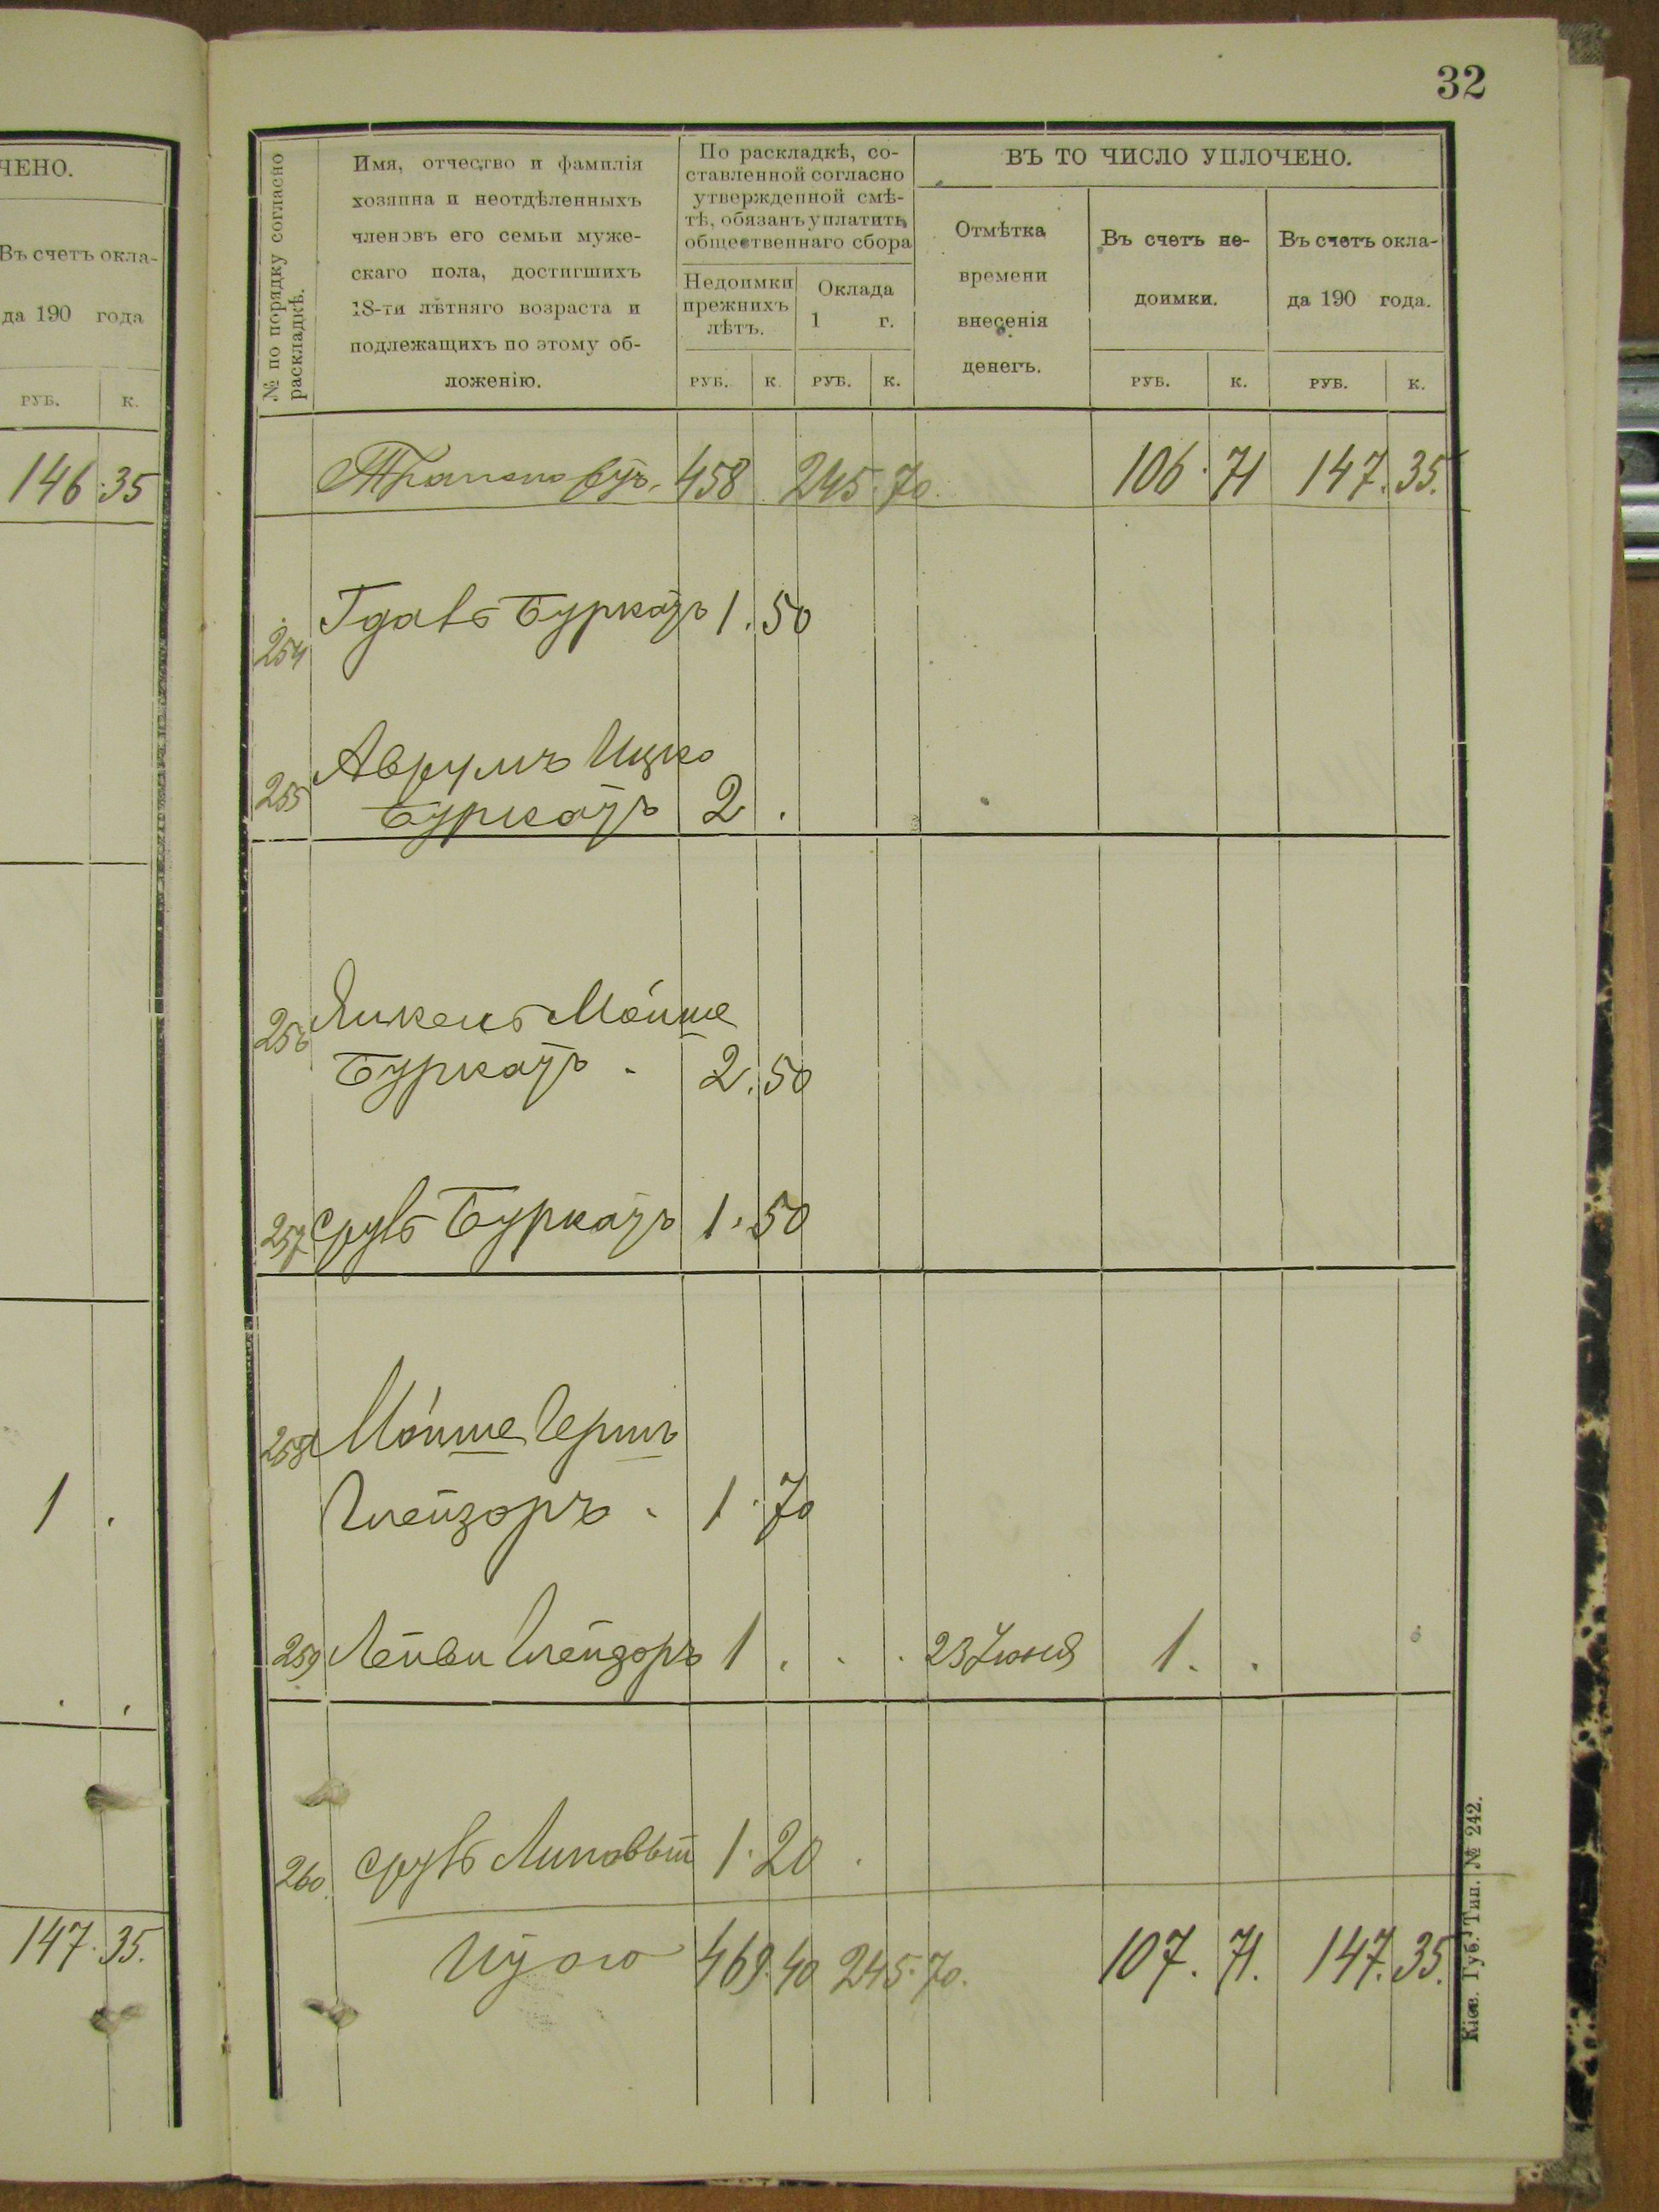 ЧЕНО.
Въ счетъ окла-
да 190 года
РУБ. К.
146.35
1 .
. .
147.35.
32
№ по порядку согласно
раскладкѣ.
Имя, отчество и фамилія
хозяина и неотдѣленныхъ
членовъ его семьи муже-
скаго пола, достигшихъ
18-ти лѣтняго возраста и
подлежащихъ по этому об-
ложенію.
По раскладкѣ, со-
ставленной согласно
утвержденной смѣ-
тѣ, обязанъ уплатить
общественнаго сбора
Недоимки
прежнихъ
лѣтъ.
Оклада
1 г.
РУБ. К. РУБ. К.
ВЪ ТО ЧИСЛО УПЛОЧЕНО.
Отмѣтка
времени
внесенія
денегъ.
Въ счетъ не-
доимки.
РУБ. К.
Въ счетъ окла-
да 190 года.
РУБ. К.
458 245.70. 106.71 147.35.
254 Буркатъ 1.50
255 Аврумъ Ицко
Буркатъ 2 .
256 Янкель Мойше
Буркатъ . 2.50
257 Сруль Буркатъ 1.50
258 Мойше Гершъ
Глейзоръ . 1.70
259 Лейви Глейзоръ 1 . . . 23 Іюня 1. .
260. Сруль Липовый 1.20 .
Итого 469.40 245.70. 107.71. 147.35.
Кіев. Губ. Тип. № 242.